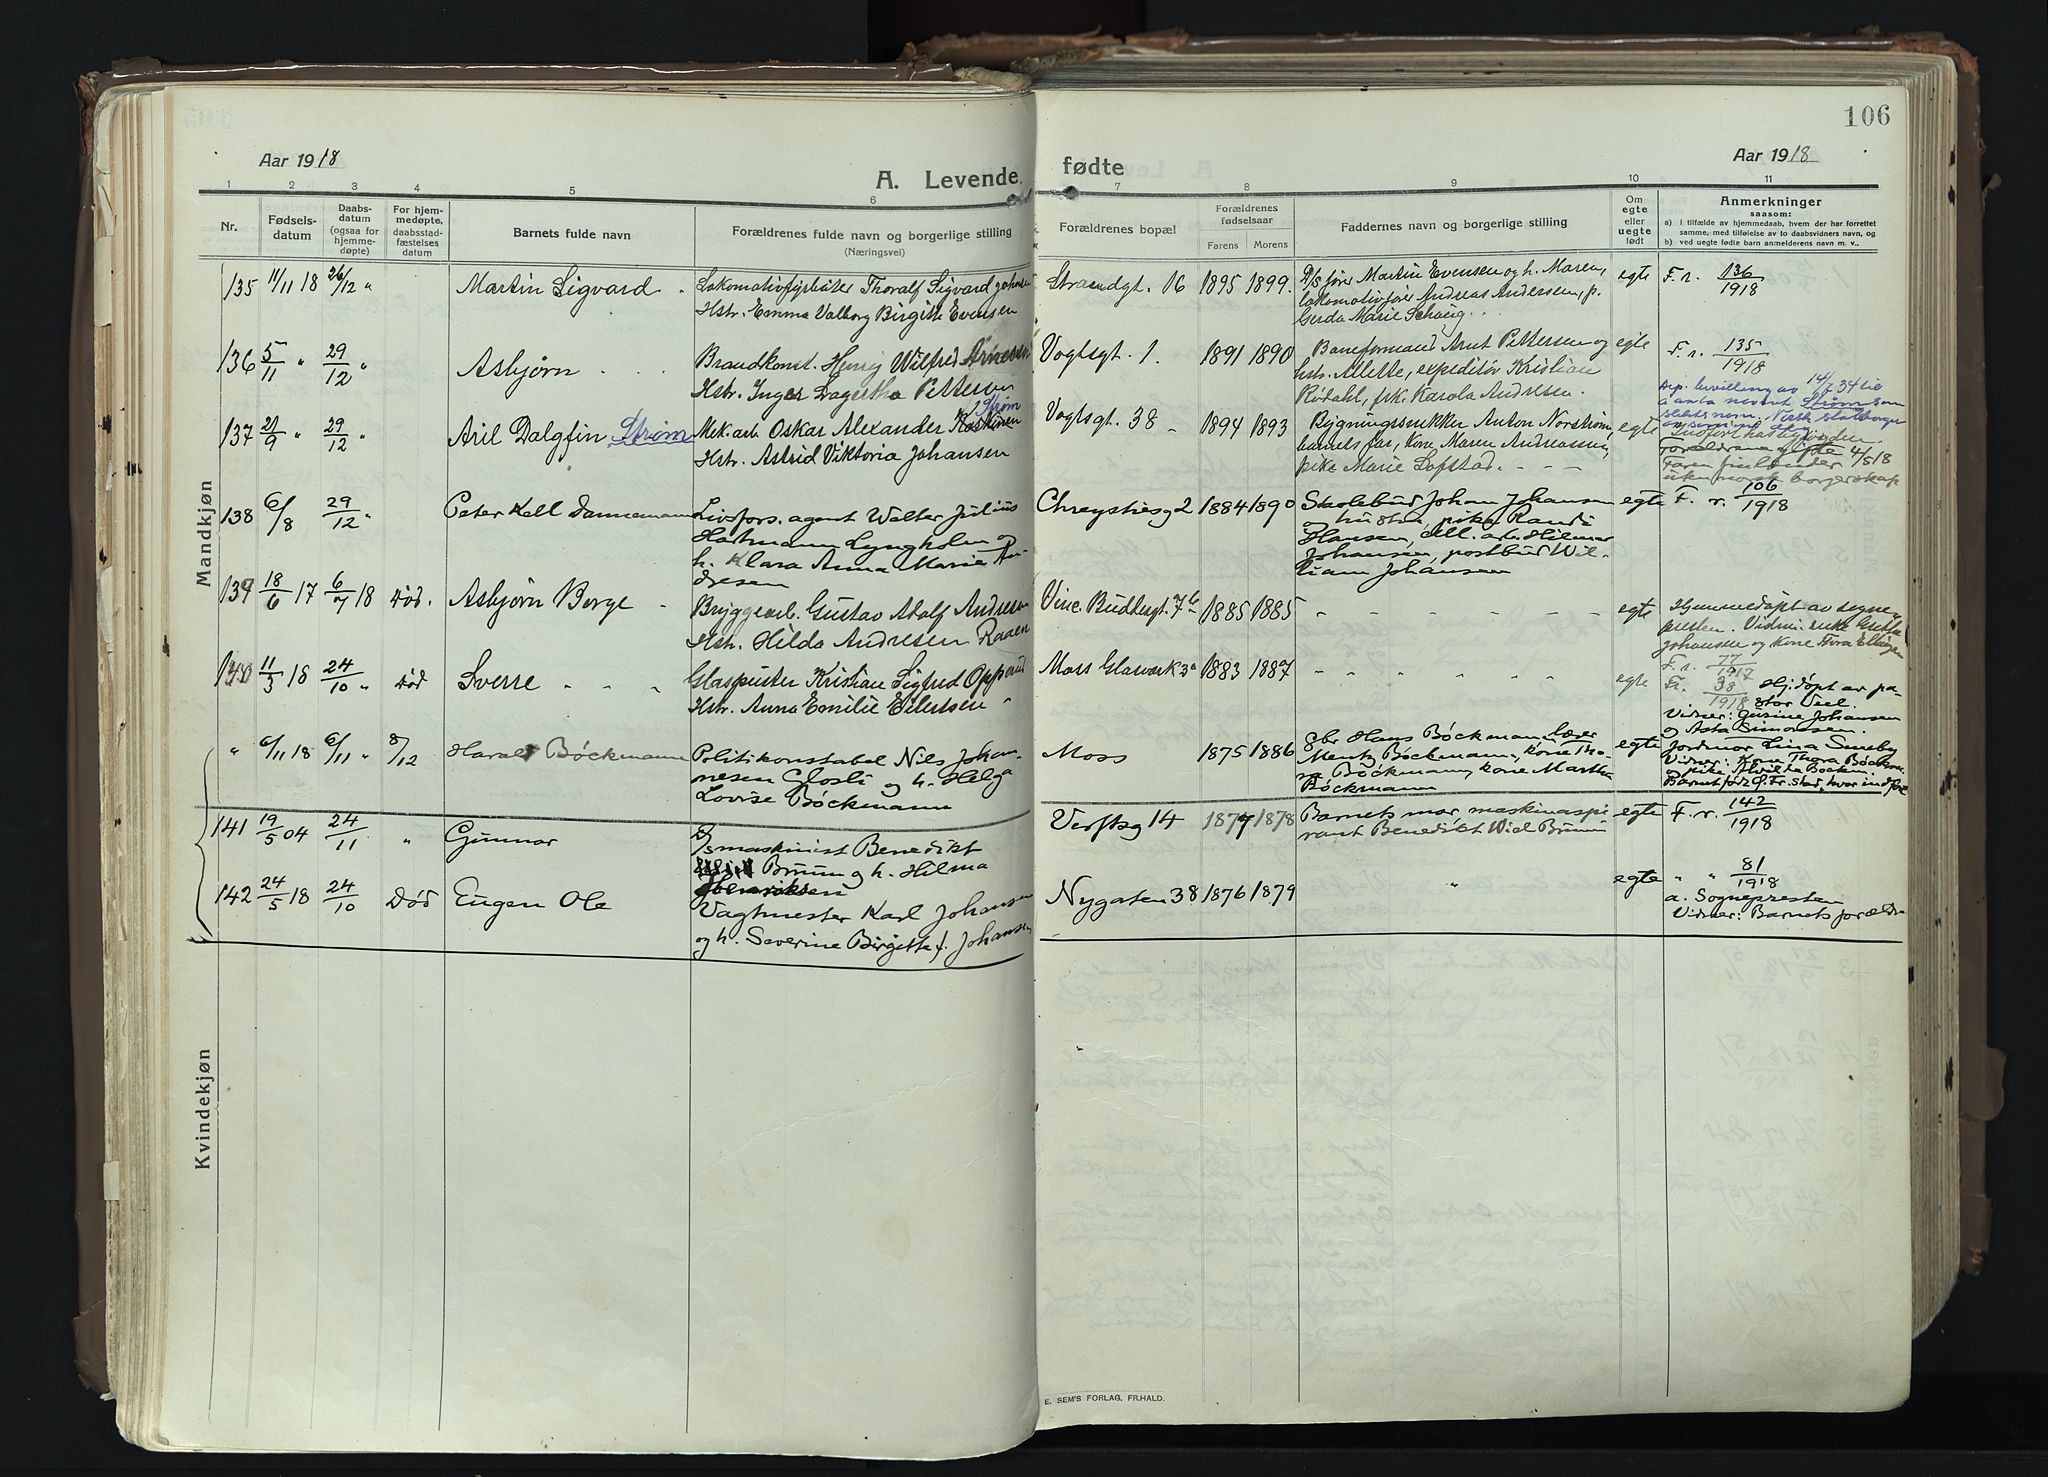 106
Aar 1918
A. Levende
fødte
Aar 1918
1 2 3 4 5 6
7 8 9 10 11
Nr.
Fødsels-
datum
Daabs-
datum
(ogsaa for
hjemme-
døpte)
For hjem-
medøpte,
daabsstad-
fæstelses
datum
Barnets fulde navn
Forældrenes fulde navn og borgerlige stilling
(Næringsvei)
Forældrenes bopæl
Forældrenes
fødselsaar
Farens
Morens
Faddernes navn og borgerlige stilling
Om
egte
eller
uegte
født
Anmerkninger
saasom:
a) i tilfælde av hjemmedaab, hvem der har forrettet
samme, med tilføielse av to daabsvidners navn, og
b) ved uegte fødte barn anmelderens navn m. v..
Mandkjøn
135 11/11 18 26/12 "
Martin Sigvard
Lokomotivfyrbøter Thoralf Sigvard Johnsen
Hstr. Emma Valborg Birgitte Evensen
Strandgt. 16 1895 1899
D/S fører Martin Evensen og h. Maren,
lokomotivfører Andreas Andersen, p.
Gerda Marie Schaug
egte
F. r. 136/1918
136 5/11 " 29/12 "
Asbjørn
Brandkonst. Henry Wilfred Arnesen
Hstr. Inger Dagertha Pettersen
Vogtsgt. 1. 1891 1890
Baneformand Arnt Pettersen og
hstr. Allette, expeditør Kristian
Rödahl, frk. Karola Andresen.
egte
F. r. 135/1918
137 21/9 " 29/12 "
Aril Dalgfin Strøm
Strøm
Mek. arb. Oskar Alexander Koskinen
Hstr. Astrid Viktoria Johansen
Vogtsgt. 38 1894 1893
Bygningssnekker Anton Norstrøm,
barnets far, kone Maren Andreassen,
pike Marie Lofstad.
egte
bevilling av 14/7 34 til
å anta navnet Strøm som
slektsnavn. Norsk statsborger
Forældrene gifte 4/5 18
Faren finlænder
uten norsk borgerskap
138 6/8 29/12 "
Peter Kell Dannemann
Livsfors. agent Walter Julius
Hartmann Lyngholm og
h. Klara Anna Marie An-
dresen
Chrystiesg 2 1884 1890
Skolebud Johan Johansen
og hustru, pike Randi
Hansen, cell. arb. Hilmar
Johansen, postbud Wil-
liam Johansen
egte
F. r. 106/1918
139 18/6 17 6/7 18 Død.
Asbjørn Borge
Bryggearb. Gustav Adolf Andresen
Hstr. Hilda Andresen Raaen
Vinc. Buddesgt. 7b 1885 1885
egte
Hjemmedøpt av sogne-
presten. Vidner: enke
Johansen og kone Thora Ellingsen
F. r. 77/1917
140 11/3 18 24/10 " Død
Sverre
Glaspuster Kristian Sigfred Opperud
Hstr. Anna Emilie Eilertsen
Moss Glasverk 3a 1883 1887
egte
Fr. 38/1918 Hj.døpt av pa-
stor Veel.
Vidner: Gusine Johansen
og Asta Simonsen.
" 6/11 18 6/11 " 8/12
Harald Bøckmann
Politikonstabel Nils Johan-
nesen Glosli og h. Helga
Lovise Bøckmann
Moss 1875 1886
gbr Hans Bøckmann, lærer
Mentz Bøckmann, kone Tho-
ra Bøckmann, kone Martha
Bøckmann
egte
Jordmor Lina Semeby
Vidner: Kone Thora Bøckm.
og pike Alvilde Bøckm.
Barnet født i Fr. stad, hvor indført
141 19/5 04 24/11 "
Gunnar
D/s maskinist Benedikt
Bruun og h. Hilma
Henriksen
Verftsg 14 1877 1878
Barnets mor, maskinaspi-
rant Benedikt Wiel Bruun
egte
F. r. 142/1918
142 24/5 18 24/10 Død
Eugen Ole
Vagtmester Karl Johansen
og h. Severine Birgitte f. Johansen
Nygaten 38 1876 1879
"
egte
" " 81/1918
a. Sognepresten
Vidner: Barnets forældre
Kvindekjøn
E. SEM'S FORLAG, FR.HALD.